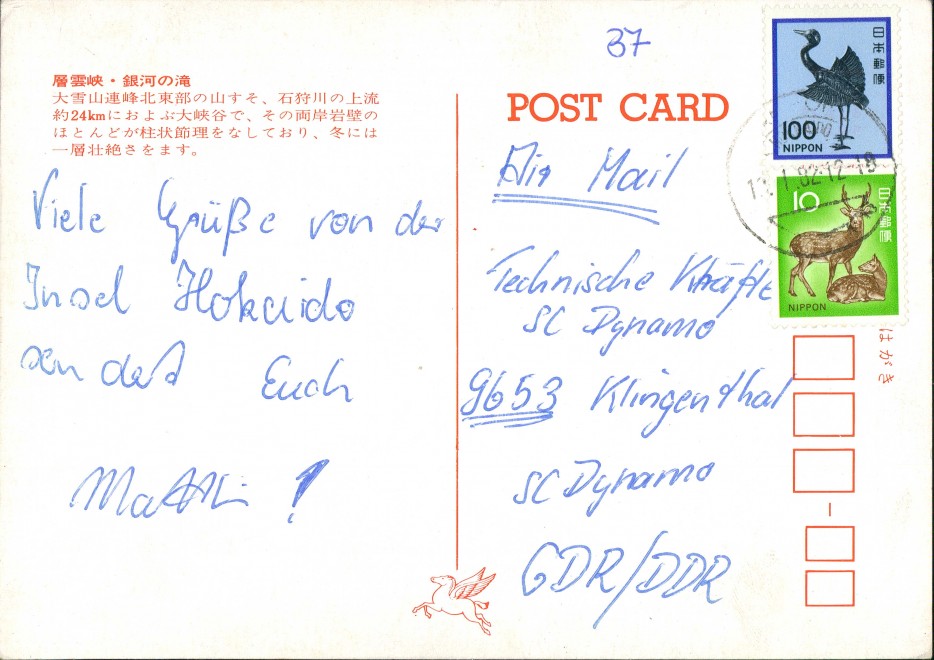 37
層雲峡・銀河の滝
大雪山連峰北東部の山すそ、石狩川の上流
約24kmにおよぶ大峡谷で、その両岸岩壁の
ほとんどが柱状節理をなしており、冬には
一層壮絶さをます。
Viele Grüße von der
Insel Hokaido
sendet Euch
POST CARD
Air Mail
Technische Kräfte
SC Dynamo
9653 Klingenthal
SC Dynamo
GDR/DDR
日本郵便
100
NIPPON
10
日本郵便
NIPPON
1.82.12-18
はがき